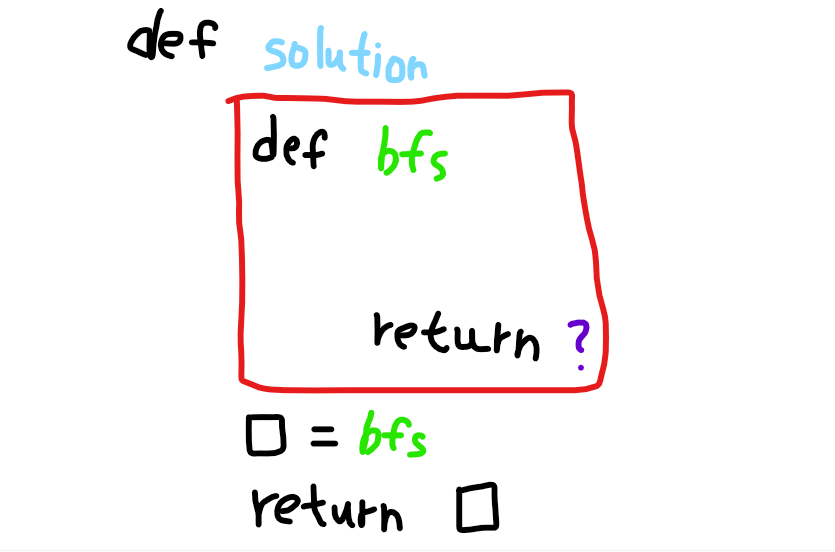 def solution
def bfs
return ?
□ = bfs
return □